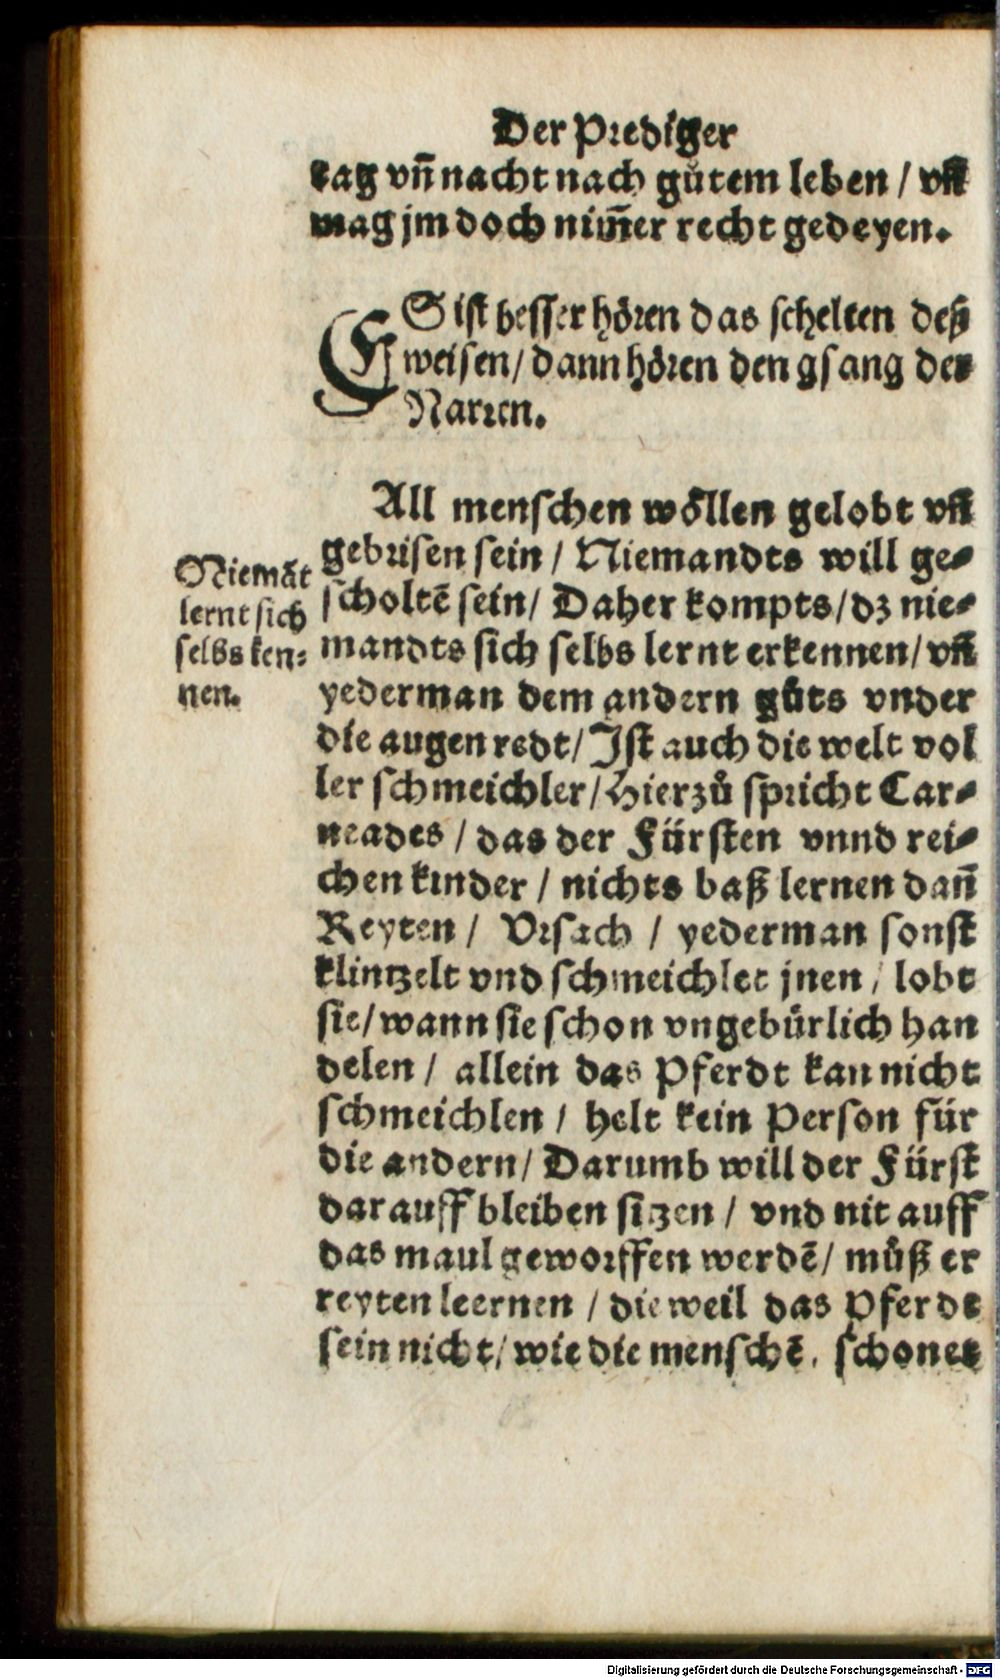 Der Prediger
tag vñ nacht nach gůtem leben / vñ
mag jm doch nim̃er recht gedeyen.
ES ist besser hören das schelten deß
weisen / dann hören den gsang der
Narren.
All menschen wöllen gelobt vñ
gebrisen sein / Niemandts will ge-
scholtẽ sein / Daher kompts / dz nie-
mandts sich selbs lernt erkennen / vñ
yederman dem andern gůts vnder
die augen redt / Ist auch die welt vol
ler schmeichler / Hierzů spricht Car-
neades / das der Fürsten vnnd rei-
chen kinder / nichts baß lernen dañ
Reyten / Vrsach / yederman sonst
klintzelt vnd schmeichlet jnen / lobt
sie / wann sie schon vngebürlich han
delen / allein das Pferdt kan nicht
schmeichlen / helt kein Person für
die andern / Darumb will der Fürst
darauff bleiben sitzen / vnd nit auff
das maul geworffen werdẽ / můß er
reyten leernen / dieweil das Pferdt
sein nicht / wie die menschẽ, schonet
Niemãt
lernt sich
selbs ken-
nen.
Digitalisierung gefördert durch die Deutsche Forschungsgemeinschaft - DFG